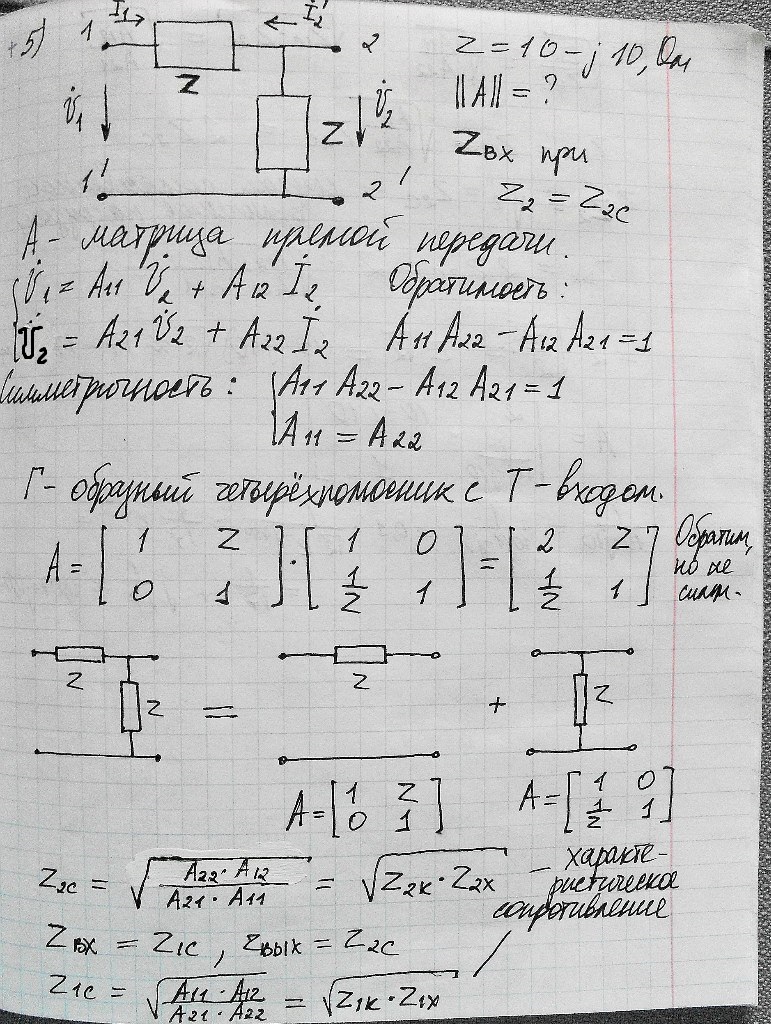 +5)
İ₁ İ₂'
1 2 Z = 10 - j 10, Ом
Z
U̇₁ Z U̇₂ ||A|| = ?
Zвх при
1' 2' Z₂ = Z₂c
A - матрица прямой передачи.
U̇₁ = A11 U̇₂ + A12 İ₂ Обратимость:
U̇₂ = A21 U̇₂ + A22 İ₂ A11 A22 - A12 A21 = 1
Симметричность: { A11 A22 - A12 A21 = 1
A11 = A22
Г - образный четырёхполюсник с Т - входом.
A = [1 Z; 0 1] · [1 0; 1/Z 1] = [2 Z; 1/Z 1] Обратим,
но не
симм.
Z Z = Z + Z
A = [1 Z; 0 1] A = [1 0; 1/Z 1]
Z₂c = √(A22 · A12 / A21 · A11) = √(Z₂к · Z₂х) — характе-
ристическое
сопротивление
Zвх = Z1c , Zвых = Z2c
Z1c = √(A11 · A12 / A21 · A22) = √(Z1к · Z1х)